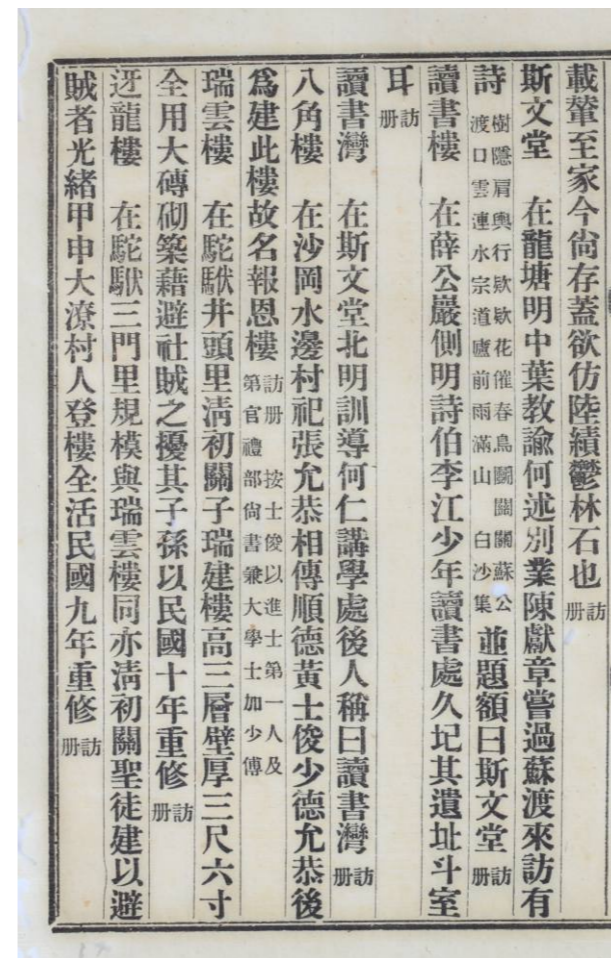 載輦至家今尙存蓋欲仿陸績鬱林石也 訪册
斯文堂 在龍塘明中葉教諭何述別業陳獻章嘗過蘇渡來訪有
詩 樹隱肩輿行欵欵花催春鳥鬭關關蘇公渡口雲連水宗道廬前雨滿山 白沙集 並題額曰斯文堂 訪册
讀書樓 在薛公巖側明詩伯李江少年讀書處久圮其遺址斗室
耳 訪册
讀書灣 在斯文堂北明訓導何仁講學處後人稱曰讀書灣 訪册
八角樓 在沙岡水邊村祀張允恭相傳順德黃士俊少德允恭後
爲建此樓故名報恩樓 訪册 按士俊以進士第一人及第官禮部尙書兼大學士加少傅
瑞雲樓 在駝馱井頭里淸初關子瑞建樓高三層壁厚三尺六寸
全用大磚砌築藉避社賊之擾其子孫以民國十年重修 訪册
迓龍樓 在駝馱三門里規模與瑞雲樓同亦淸初關聖徒建以避
賊者光緒甲申大潦村人登樓全活民國九年重修 訪册